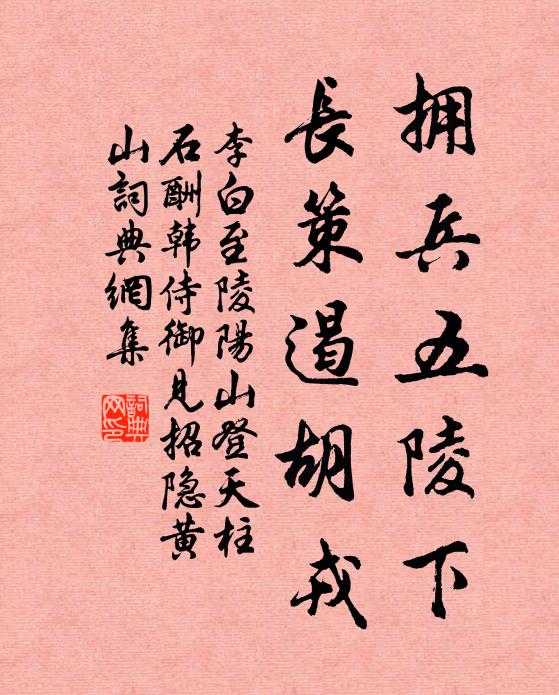 拥兵五陵下
長策遏胡戎
李白至陵陽山登天柱
石酬韩侍御見招隐黄
山詞典網集
詞典网印